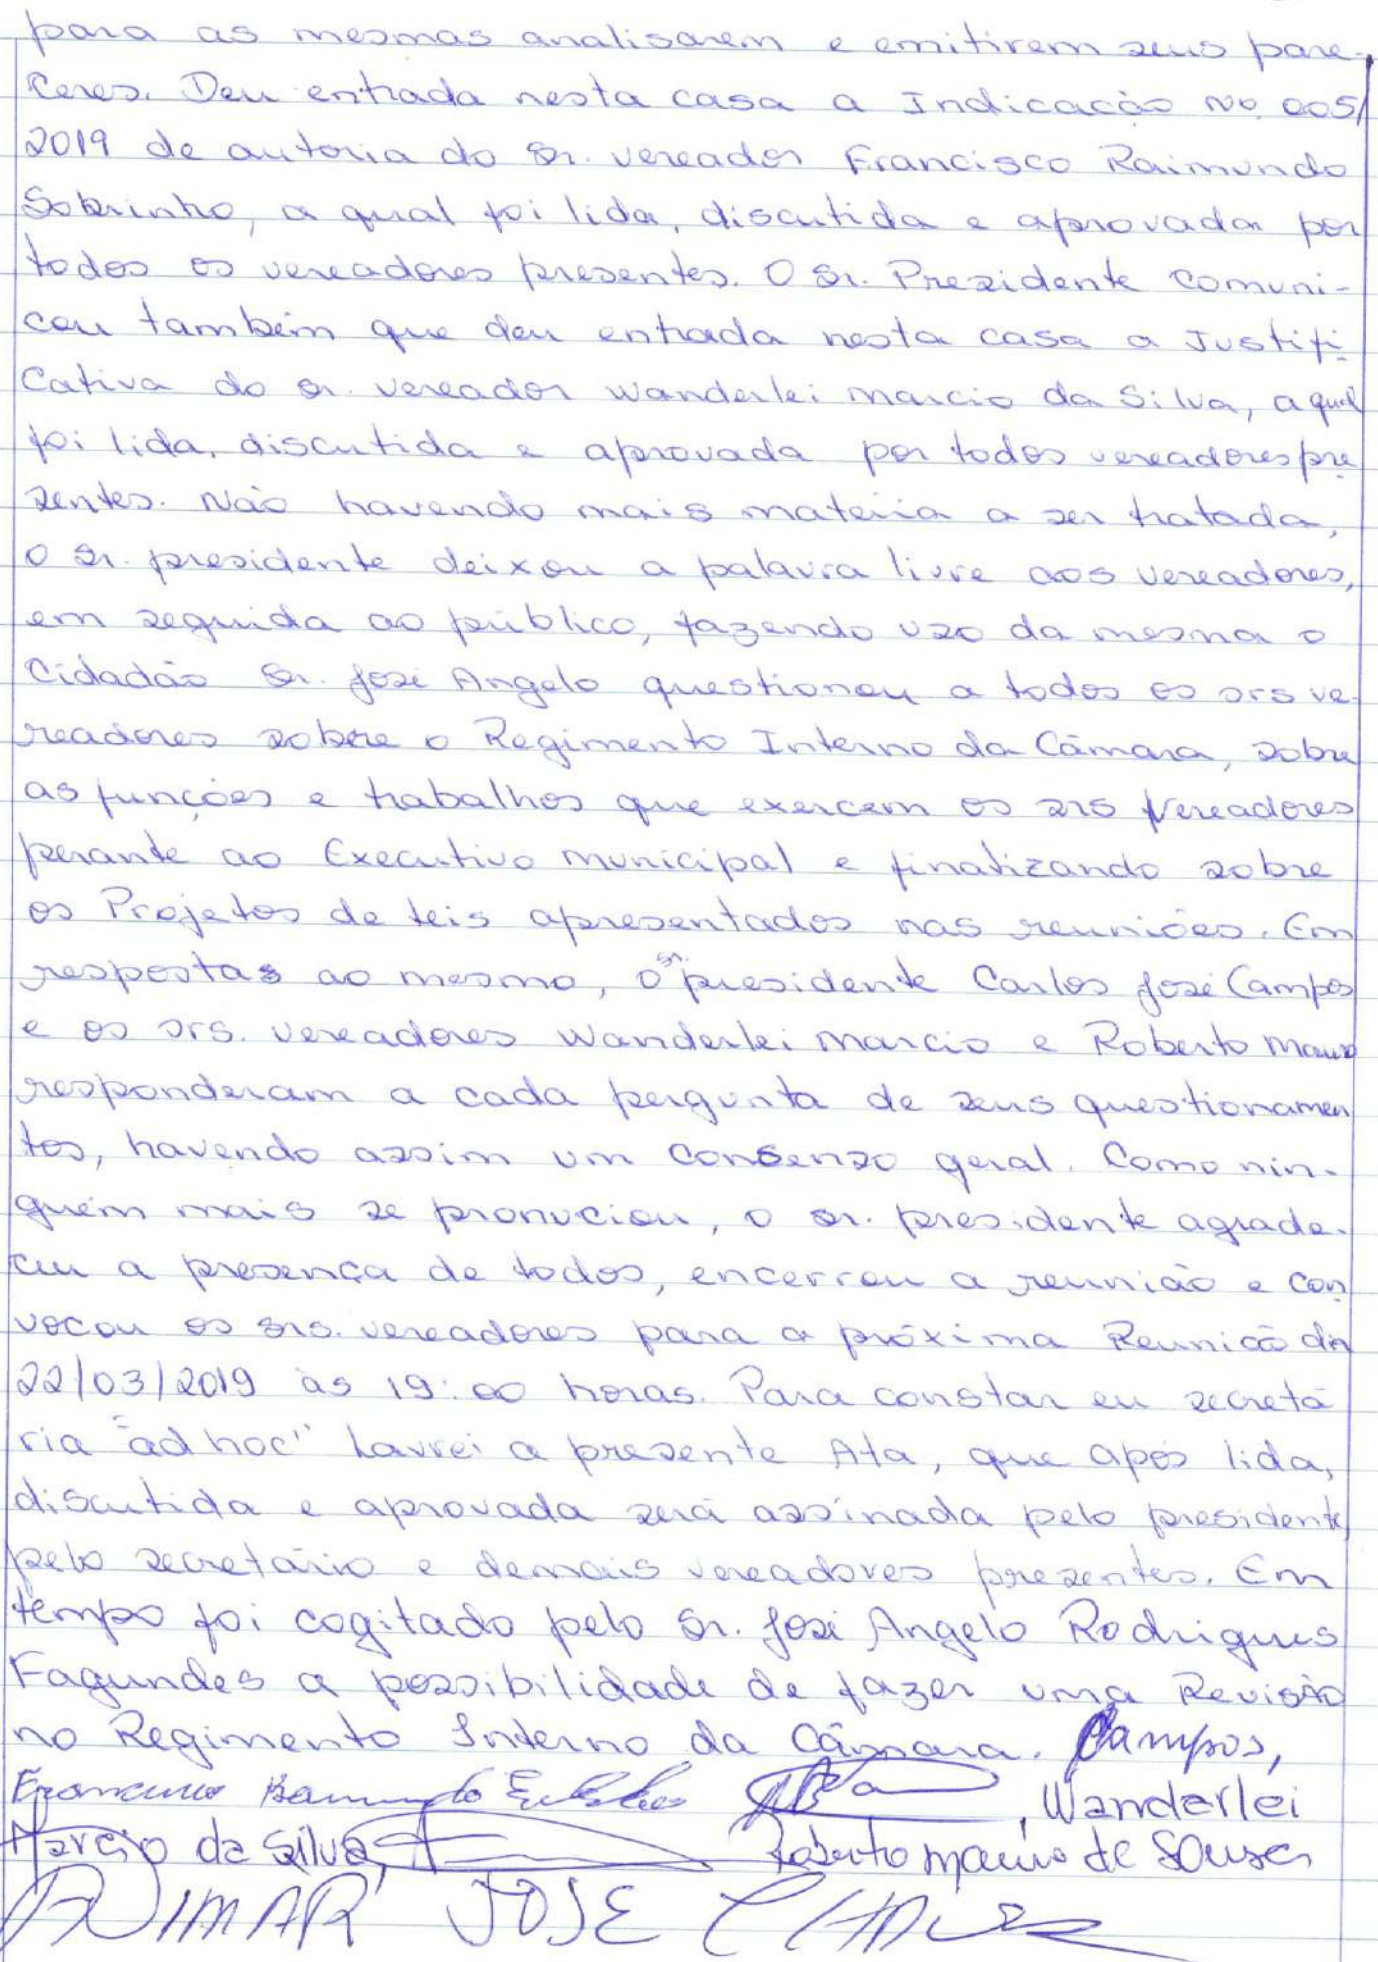 para as mesmas analisarem e emitirem seus pare-
ceres. Deu entrada nesta casa a Indicação No. 005/
2019 de autoria do Sr. vereador Francisco Raimundo
Sobrinho, a qual foi lida, discutida e aprovada por
todos os vereadores presentes. O Sr. Presidente comuni-
cou também que deu entrada nesta casa a Justifi
cativa do Sr. vereador Wanderlei Marcio da Silva, a qual
foi lida, discutida e aprovada por todos vereadores pre
sentes. Não havendo mais matéria a ser tratada,
o Sr. presidente deixou a palavra livre aos vereadores,
em seguida ao público, fazendo uso da mesma o
Cidadão Sr. José Angelo questionou a todos os srs ve-
readores sobre o Regimento Interno da Câmara, sobre
as funções e trabalhos que exercem os srs Vereadores
perante ao Executivo municipal e finalizando sobre
os Projetos de Leis apresentados nas reuniões. Em
respostas ao mesmo, o sr. presidente Carlos José Campos
e os srs. vereadores Wanderlei Marcio e Roberto Mauro
responderam a cada pergunta de seus questionamen
tos, havendo assim um consenso geral. Como nin-
guém mais se pronuciou, o sr. presidente agrade-
ceu a presença de todos, encerrou a reunião e con
vocou os srs. vereadores para a próxima Reunião dia
22/03/2019 às 19:00 horas. Para constar eu secretá
ria "ad hoc" Lavrei a presente Ata, que após lida,
discutida e aprovada será assinada pelo presidente
pelo secretário e demais vereadores presentes. Em
tempo foi cogitado pelo Sr. José Angelo Rodrigues
Fagundes a possibilidade de fazer uma Revisão
no Regimento Interno da Câmara. Campos,
Wanderlei
Marcio da Silva, Roberto Mauro de Sousa
JOSE